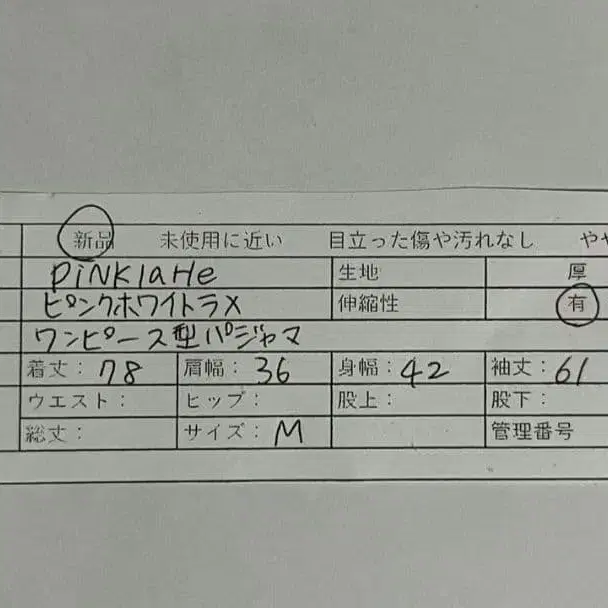 新品 未使用に近い 目立った傷や汚れなし やや
PiNKlaHe 生地 厚
ピンクホワイトラメ 伸縮性 有
ワンピース型パジャマ
着丈: 78 肩幅: 36 身幅: 42 袖丈: 61
ウエスト: ヒップ: 股上: 股下:
総丈: サイズ: M 管理番号